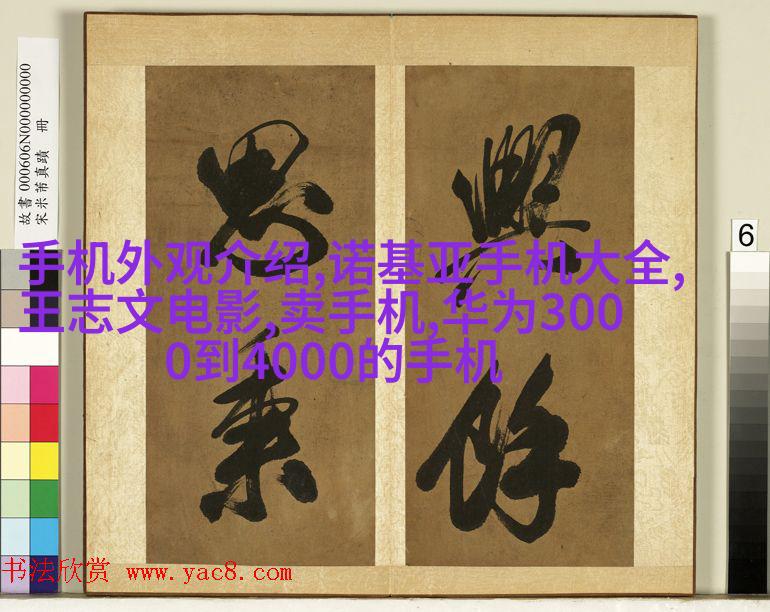 故書 000606N000000000
宋米芾真蹟 冊
興
餘
6
手机外观介绍,诺基亚手机大全,
王志文电影,卖手机,华为300
0到4000的手机
书法欣赏 www.yac8.com